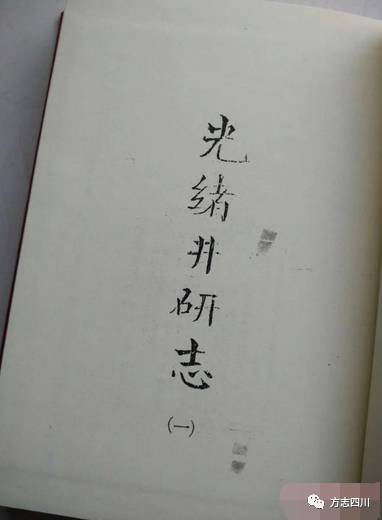 光绪井研志
(一)
方志四川